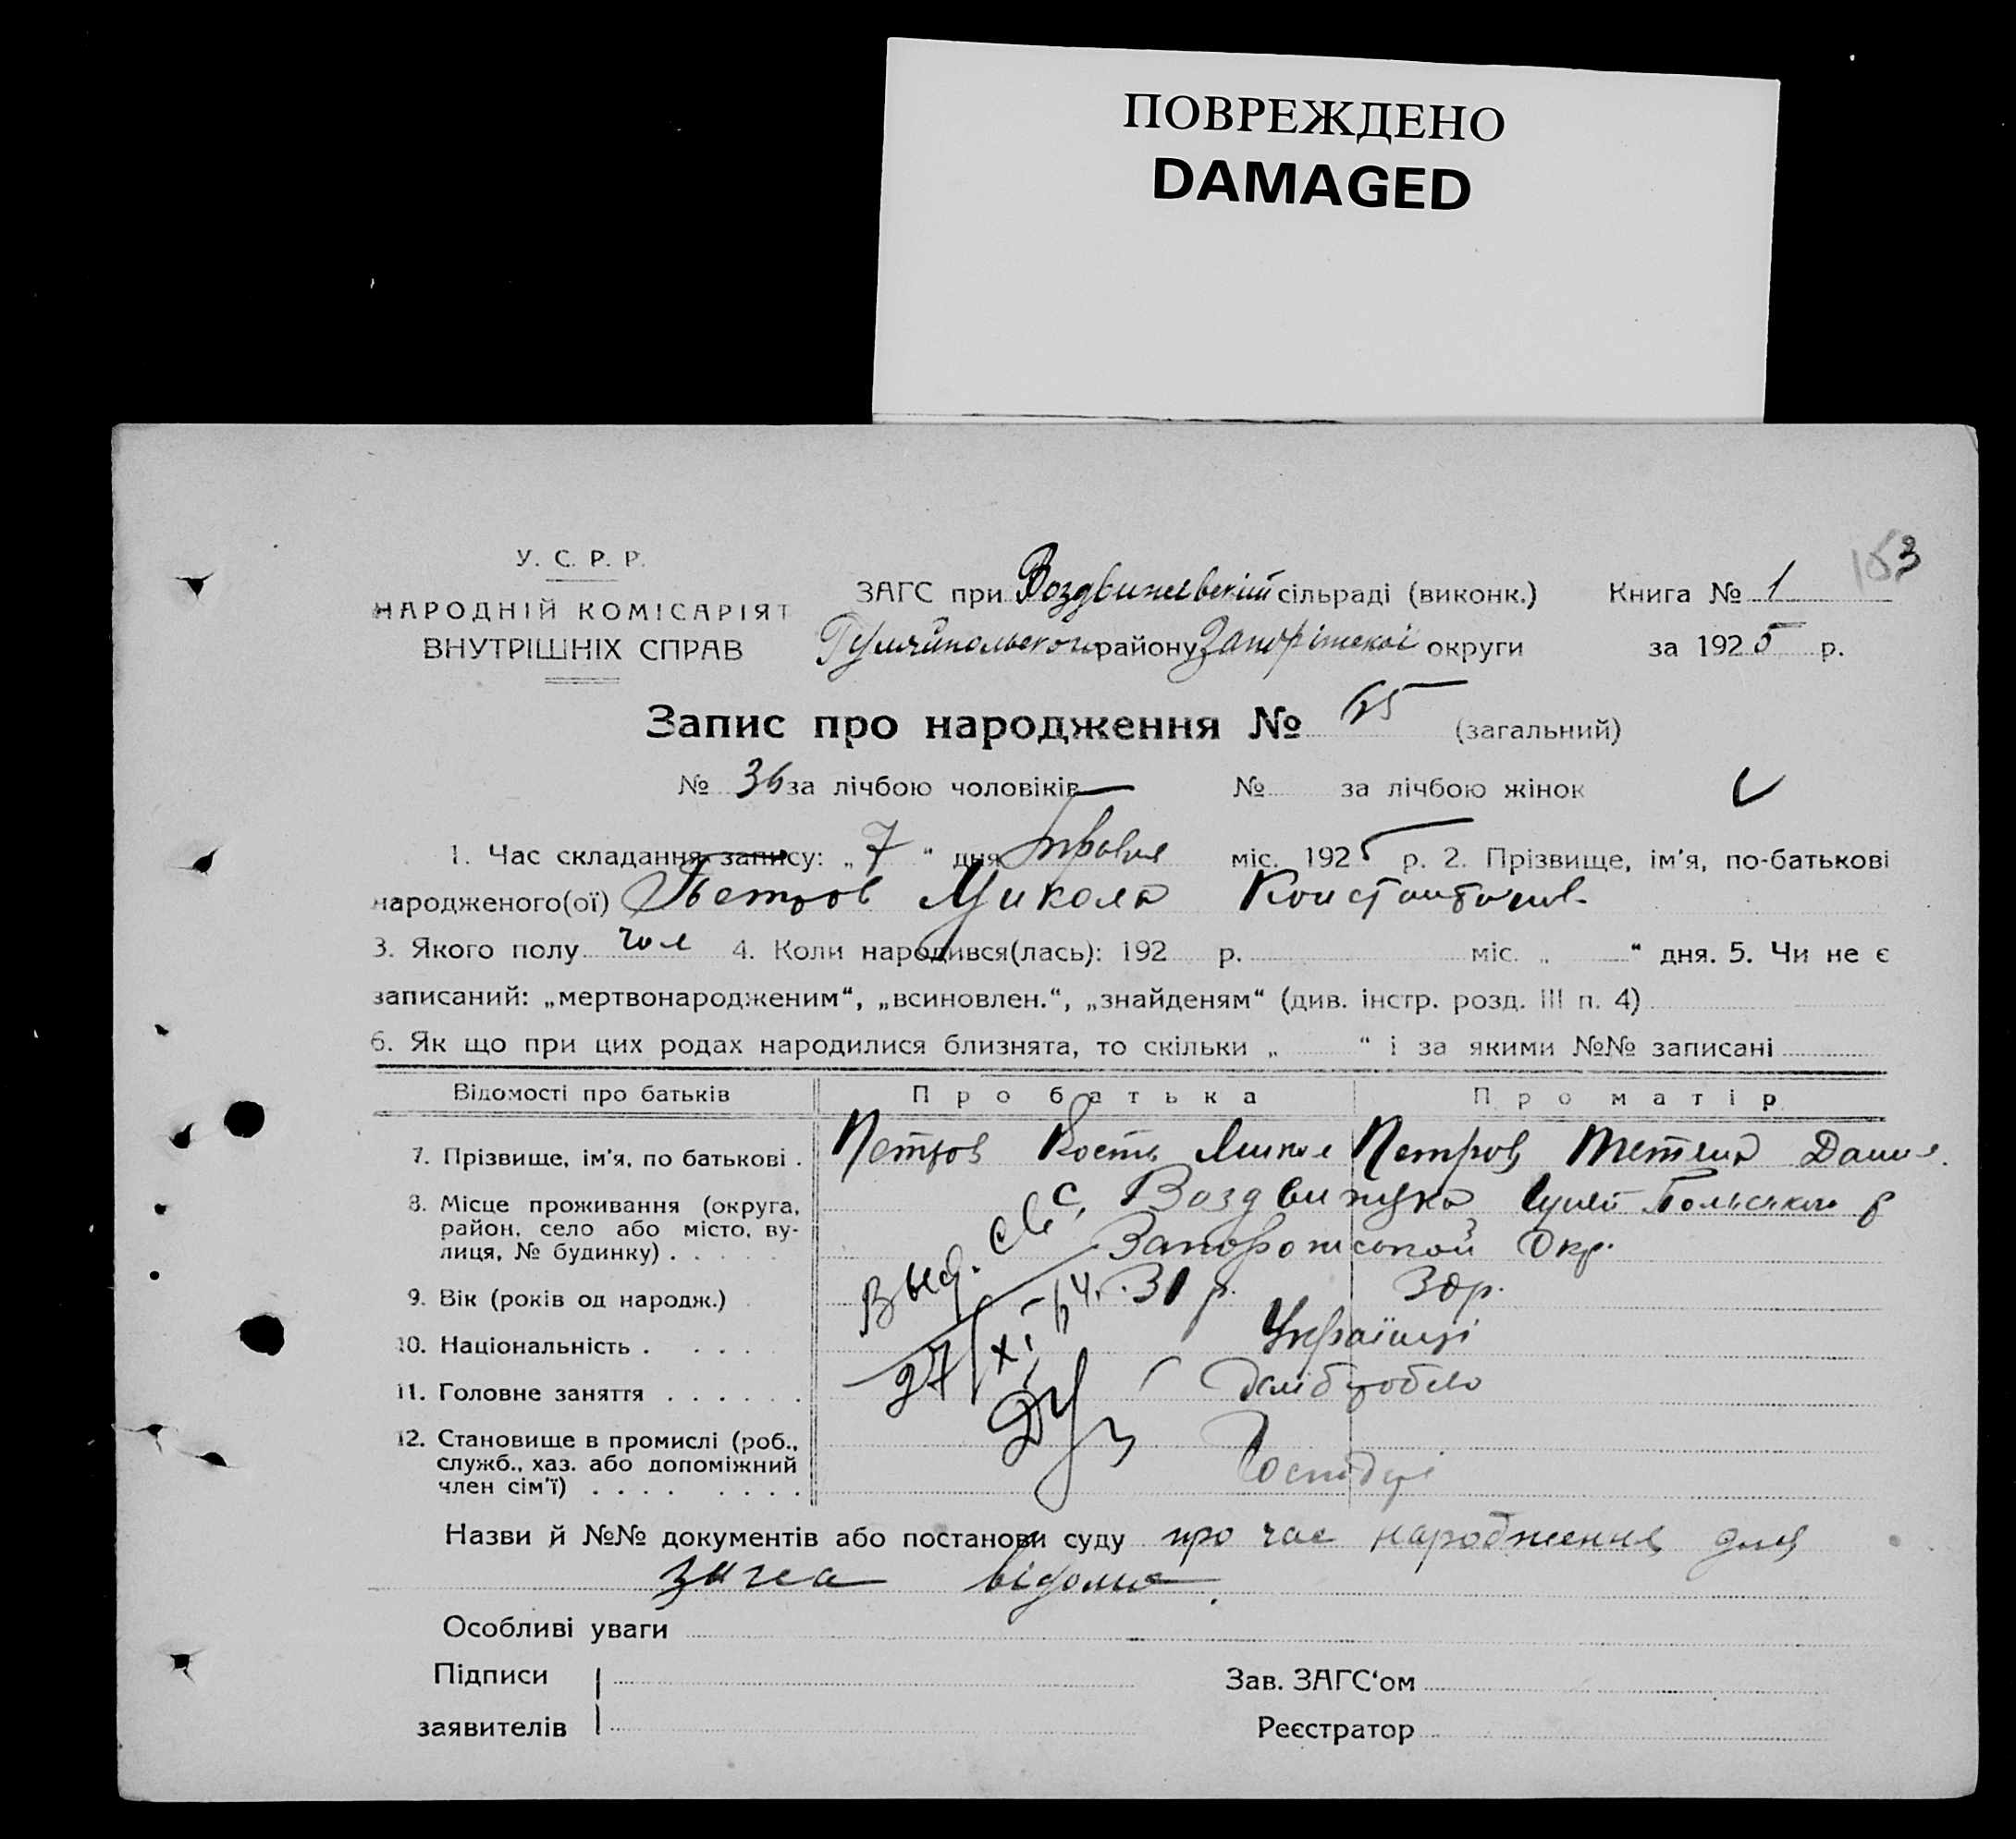 ПОВРЕЖДЕНО
DAMAGED
153
У. С. Р. Р.
НАРОДНІЙ КОМІСАРІЯТ
ВНУТРІШНІХ СПРАВ
ЗАГС при Воздвижевский сільраді (виконк.) Книга № 1
району Запоріжської округи за 1925 р.
Запис про народження № 65 (загальний)
№ 36 за лічбою чоловіків — № за лічбою жінок
1. Час складання запису: „7“ дня травня міс. 1925 р. 2. Прізвище, ім'я, по-батькові
народженого(ої) Петров Микола Константинов.
3. Якого полу чол 4. Коли народився(лась): 192 р. міс. „ “ дня. 5. Чи не є
записаний: „мертвонародженим“, „всиновлен.“, „знайденям“ (див. інстр. розд. III п. 4)
6. Як що при цих родах народилися близнята, то скільки „ “ і за якими №№ записані
Відомості про батьків Про батька Про матір
7. Прізвище, ім'я, по батькові . Петров Кость Микол Петров Тетяна Данил.
8. Місце проживання (округа, район, село або місто, вулиця, № будинку) . . . . . с. Воздвижука
Запорожської Окр.
Выд. св
9. Вік (років од народж.) 31 р. 30 р.
27/XI-64.
10. Національність . . . . . Українці
11. Головне заняття . . . . . . Хлібробство
12. Становище в промислі (роб., служб., хаз. або допоміжний член сім'ї) . . . . . . . . Господарі
Назви й №№ документів або постанови суду про час народження для
загса відомо.
Особливі уваги
Підписи
заявителів
Зав. ЗАГС‘ом
Реєстратор